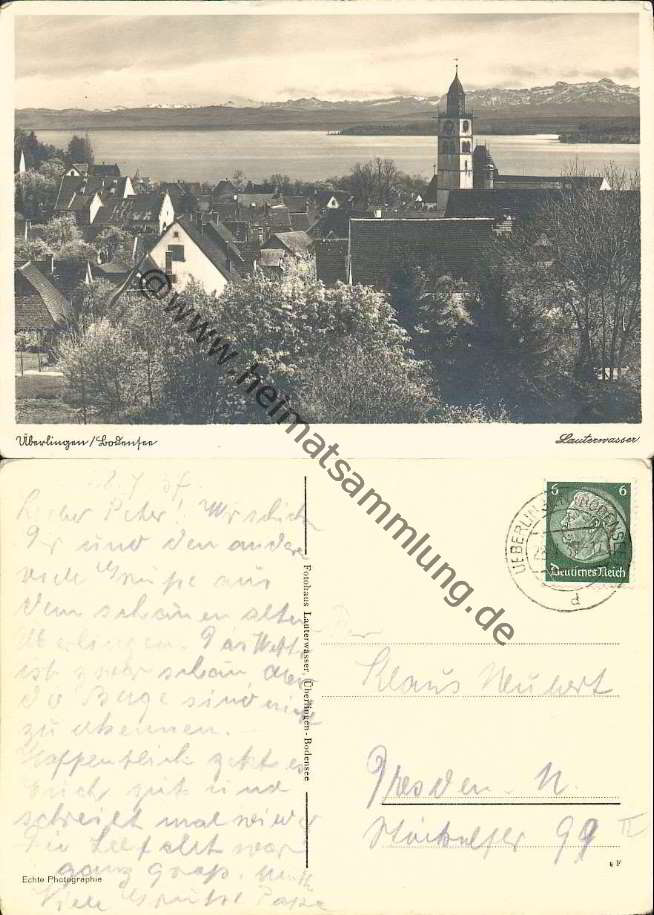 Überlingen/Bodensee
Lauterwasser
@www.heimatsammlung.de
Lieber Peter! Wir schicken
Dir und den andern
viele Grüße aus
dem schönen alten
Überlingen. Das Wetter
ist zwar schön, aber
die Berge sind nicht
zu erkennen.
Hoffentlich geht es
Euch gut und
schreibt mal wieder
ganz groß.
Viele Grüße Papa
Echte Photographie
Fotohaus Lauterwasser, Überlingen-Bodensee
6 6
Deutsches Reich
UEBERLINGEN (BODENSEE)
d
Klaus Neubert
Dresden-N.
99 II